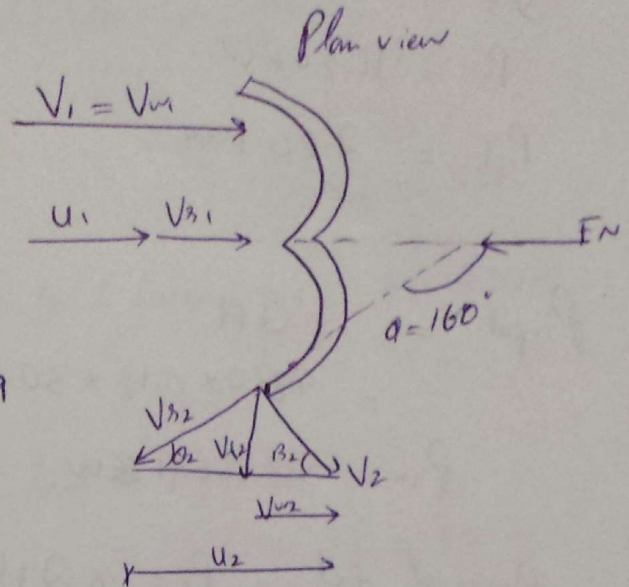 Plan view
V₁ = Vw₁
u₁ Vr₁
FN
a=160°
Vr₂
θ₂ Vf₂ B₂ V₂
Vw₂
u₂